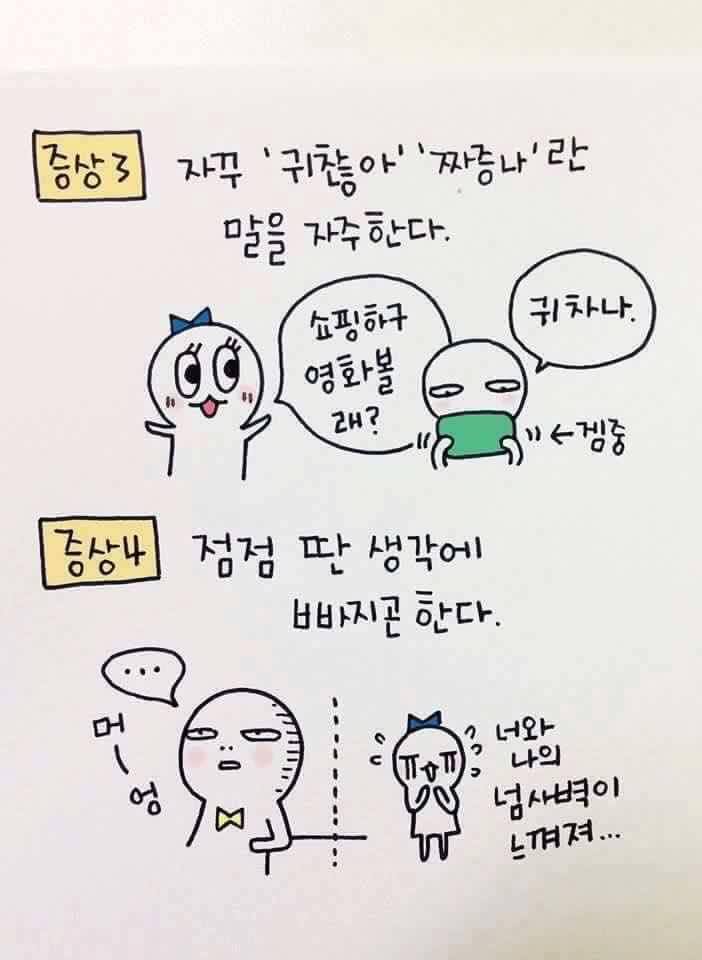 증상3 자꾸 '귀찮아' '짜증나'란
말을 자주한다.
쇼핑하구
영화볼
래?
귀차나.
←겜중
증상4 점점 딴 생각에
빠지곤 한다.
...
머
엉
ㅠㅠ
너와
나의
넘사벽이
느껴져...